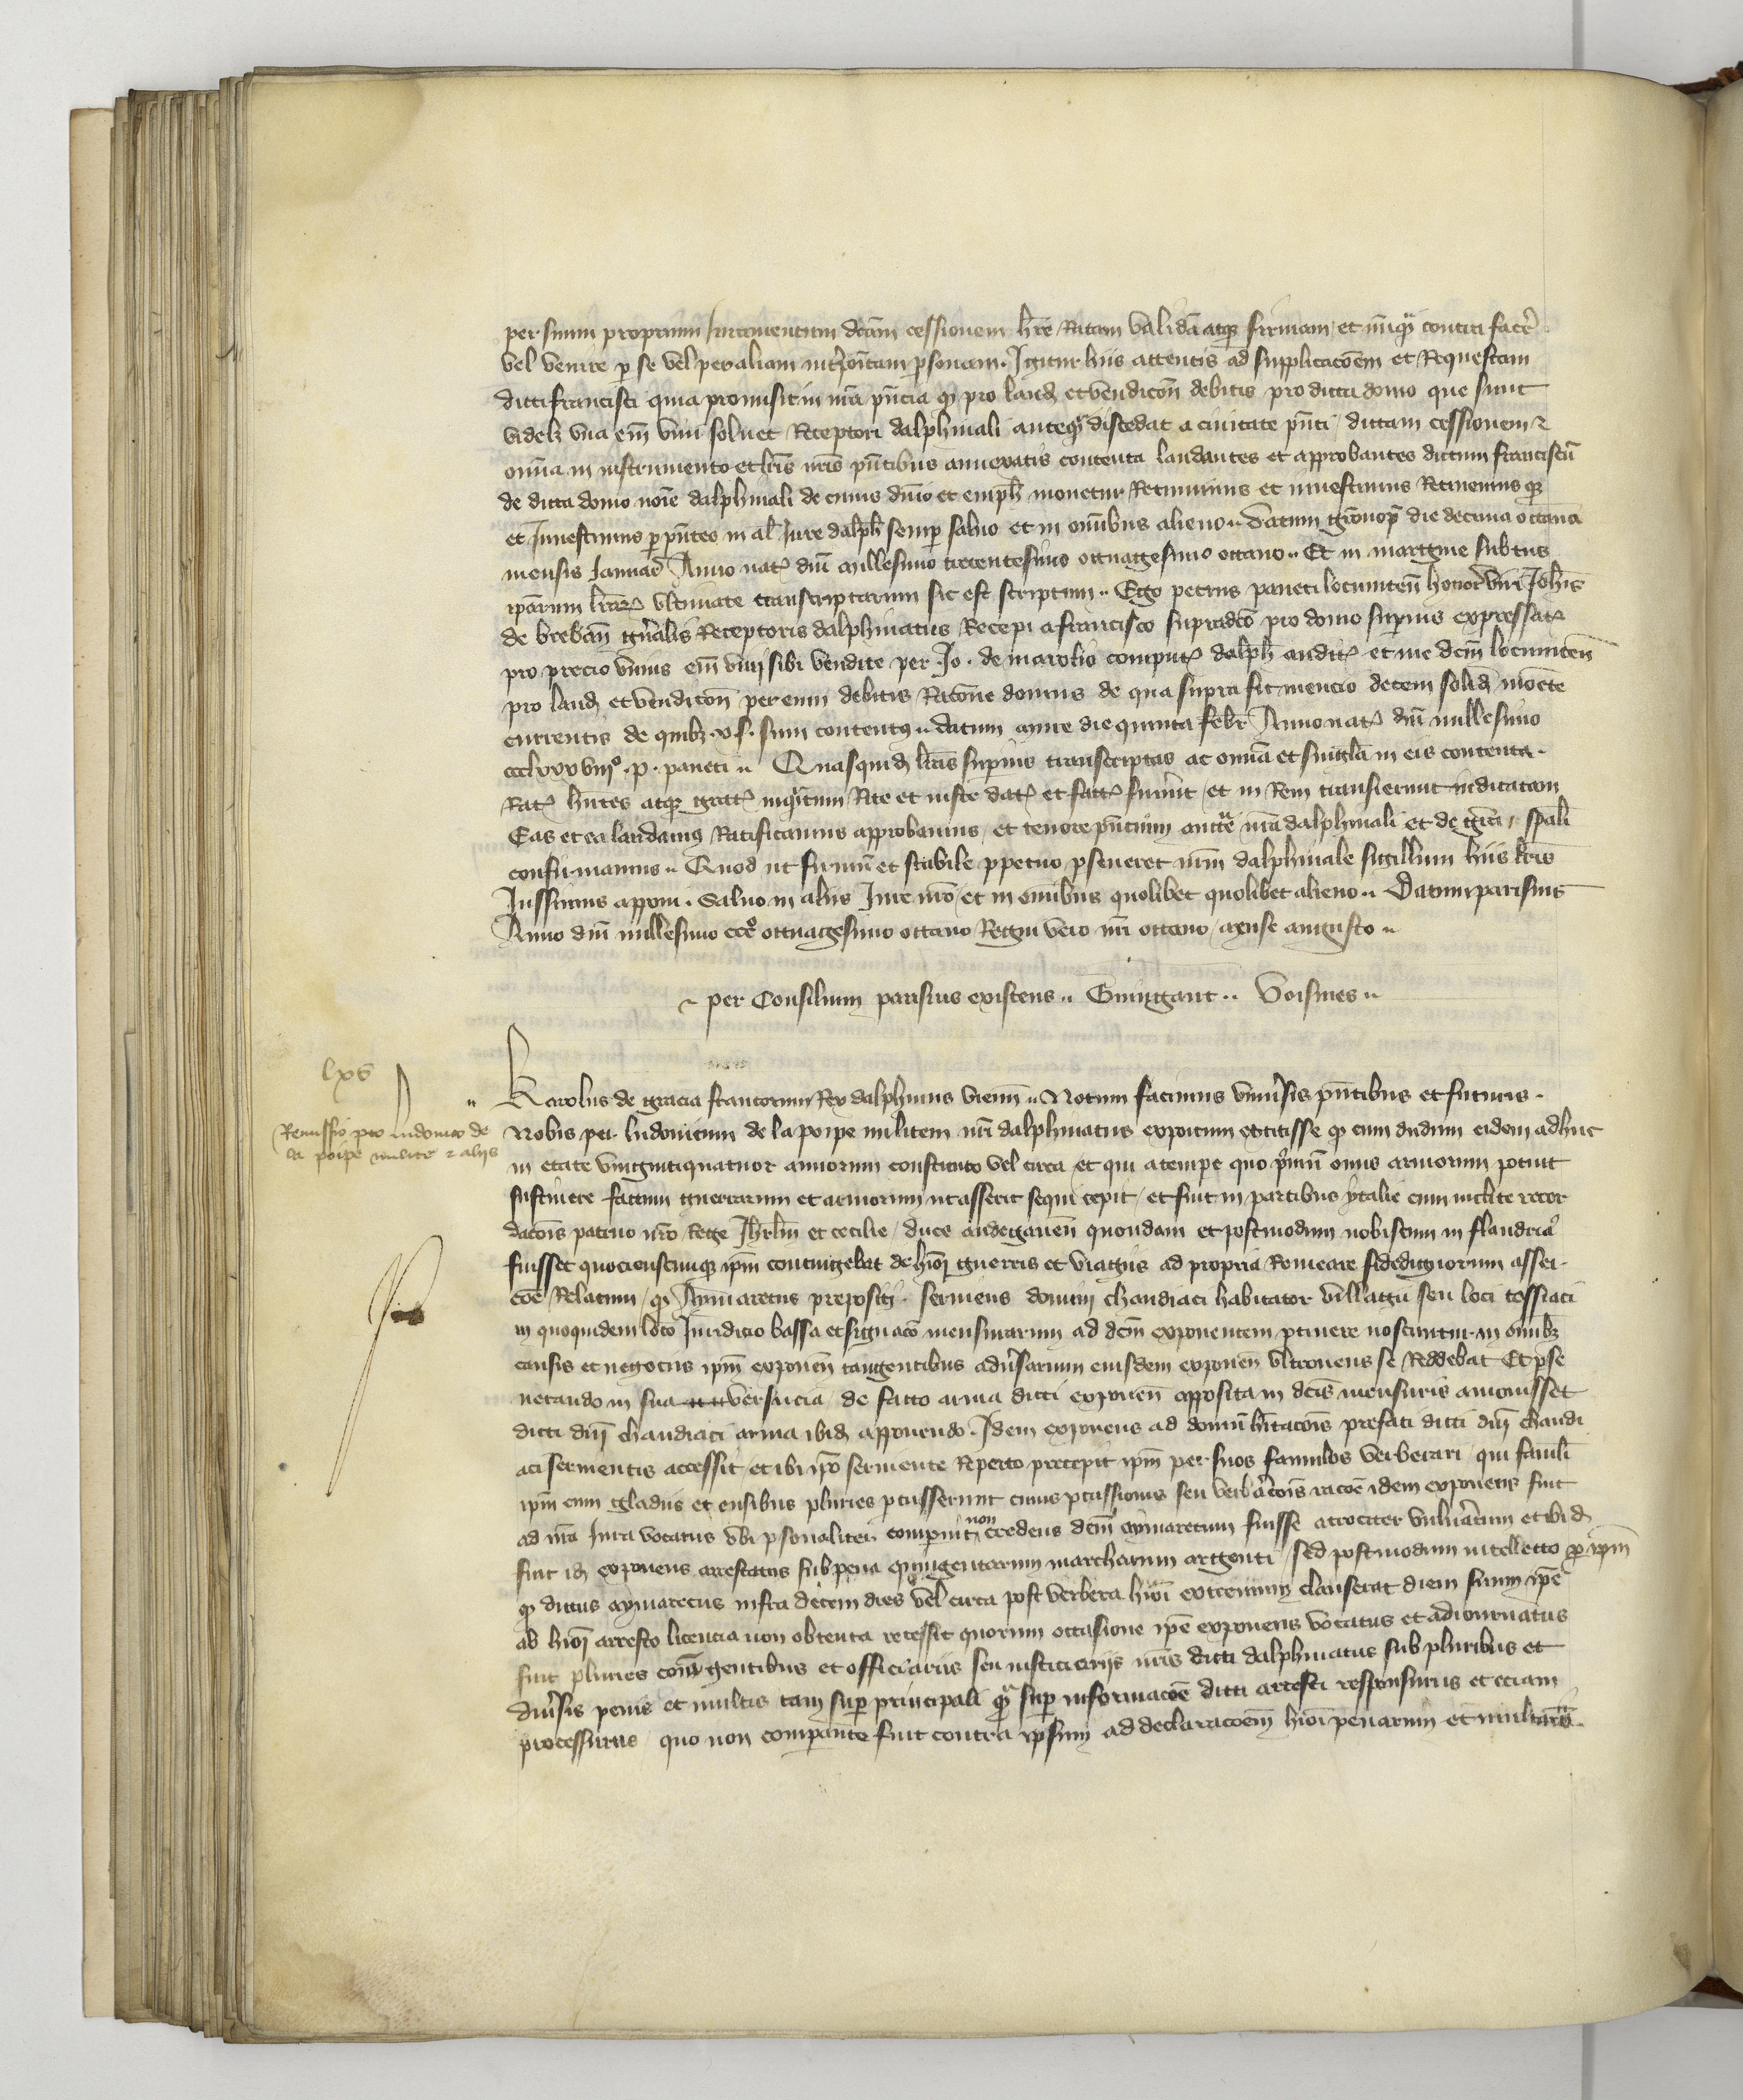 per suum proprium Juramentum dcam cessionem hre Ratam validam atque firmam et nunquam contra facere
vel venire per se vel per aliam interpositam personam. Igitur hiis attentis ad supplicacoem et Requestam
dicti francisci quia promisit in nra pncia q pro laud et vendicon debitis pro dicta domo que sunt
videlz vna em vnu soluet Receptori dalphinali antequam discedat a ciuitate pnti dictam cessionem et
omnia in instrumento et lris nris pntibus annexatis contenta laudantes et approbantes dictum franciscu
de dicta domo noie dalphinali de cuius dnio et emph mouetur Retinuimus et inuestimus Retinemus que
et Inuestimus per pntes in al Jure dalph semper saluo et in omnibus alieno .. Datum gronop die decima octaua
mensis Januarii Anno nat dni millesimo trecentesimo octuagesimo octauo .. Et in margine subtus
iparum lrarum vltimate transcriptarum sic est scriptum .. Ego petrus paneti locumten honor viri Johis
de breban gnalis Receptoris dalphinatus Recepi a francisco supradco pro domo superius expressata
pro precio vnius em viii sibi vendite per Jo. de marolio computor dalph auditor et me dcm locumten
pro laud et vendicon per eum debitis Racone domus de qua supra fit mencio decem solid monete
currentis de quibz x s. sum contentus .. datum anno die quinta febr Anno nat dni millesimo
ccclxxxviiio. p. paneti .. Quasquid lras superius transcriptas ac omia et singla in eis contenta.
Rata hntes atque grata inquantum Rite et iuste data et facta fuerint et in Rem transierunt iudicatam
Eas et ea laudamus Ratificamus approbamus, et tenore pncium aucte nra dalphinali et de gra spali
confirmamus .. Quod ut firmu et stabile ppetuo perseueret nrm dalphinale sigillum hiis lris
Jussimus apponi. Saluo in aliis Jure nro et in omnibus quolibet quolibet alieno .. Datum parisius
Anno dni millesimo ccco octuagesimo octauo Regni vero nri octauo mense augusto ..
per Consilium parisius existens .. Guingant .. Voisines ..
lxv
Remissio pro ludouico de
la poipe milite et alijs
Karolus dei gracia francorum Rex dalphinus vienn .. Notum facimus vniuersis pntibus et futuris.
Nobis per ludouicum de la poipe militem nri dalphinatus expositum extitisse q cum dudum eidem adhuc
in etate vingintiquatuor annorum constituto vel circa et qui a tempe quo primu onus armorum potuit
sustinere factum guerrarum et armorum ut asserit sequi cepit, et fuit in partibus ytalie cum inclite recor
dacois patruo nro Rege Jhrlm et cecilie, duce andegauen quondam et postmodum nobiscum in flandria
fuisset quocienscumque ipm contingebat de huiusmodi guerris et viagiis ad propria Remeare fidedignorum asser
coe Relatum, q Aymaretus prepositi. seruiens domini chandiaci habitator villagii seu loci tossiaci
in quoquidem loco Jurisdicio bassa et signaco mensurarum ad dcm exponentem ptinere noscuntur in omibz
causis et negociis ipm exponen tangentibus aduersarium eiusdem exponen vltroneus se Reddebat Et pse
uerando in sua versucia, de facto arma dicti exponen apposita in dcis mensuris amouisset
dicti dni chandiaci arma ibid apponendo. Idem exponens ad domum habitacois prefati dicti dni chandi
aci seruientis accessit et ibi ipo seruiente Reperto precepit ipm per suos famulos verberari qui famuli
ipm cum gladiis et ensibus pluries pcusserunt cuius pcussionis seu verberacois racoe idem exponens fuit
ad nra Jura vocatus vbi psonaliter comparuit non credens dcm aymaretum fuisse atrociter vulneratum et ibid
fuit id exponens arrestatus sub pena quingentarum marcharum argenti, sed postmodum intellecto per ipm
q dictus aymaretus infra decem dies vel circa post verbera huiusmodi extremum clauserat diem suum ipe
ab huiusmodi arresto licencia non obtenta recessit quorum occasione ipe exponens vocatus et adiournatus
fuit pluries coram gentibus et officiariis seu iusticiariis nris dicti dalphinatus sub pluribus et
diuersis penis et multis tam super principali quam super informacoe dicti arresti responsurus et eciam
processurus, quo non comparente fuit contra ipsum ad declaracoem huiusmodi penarum et multarum